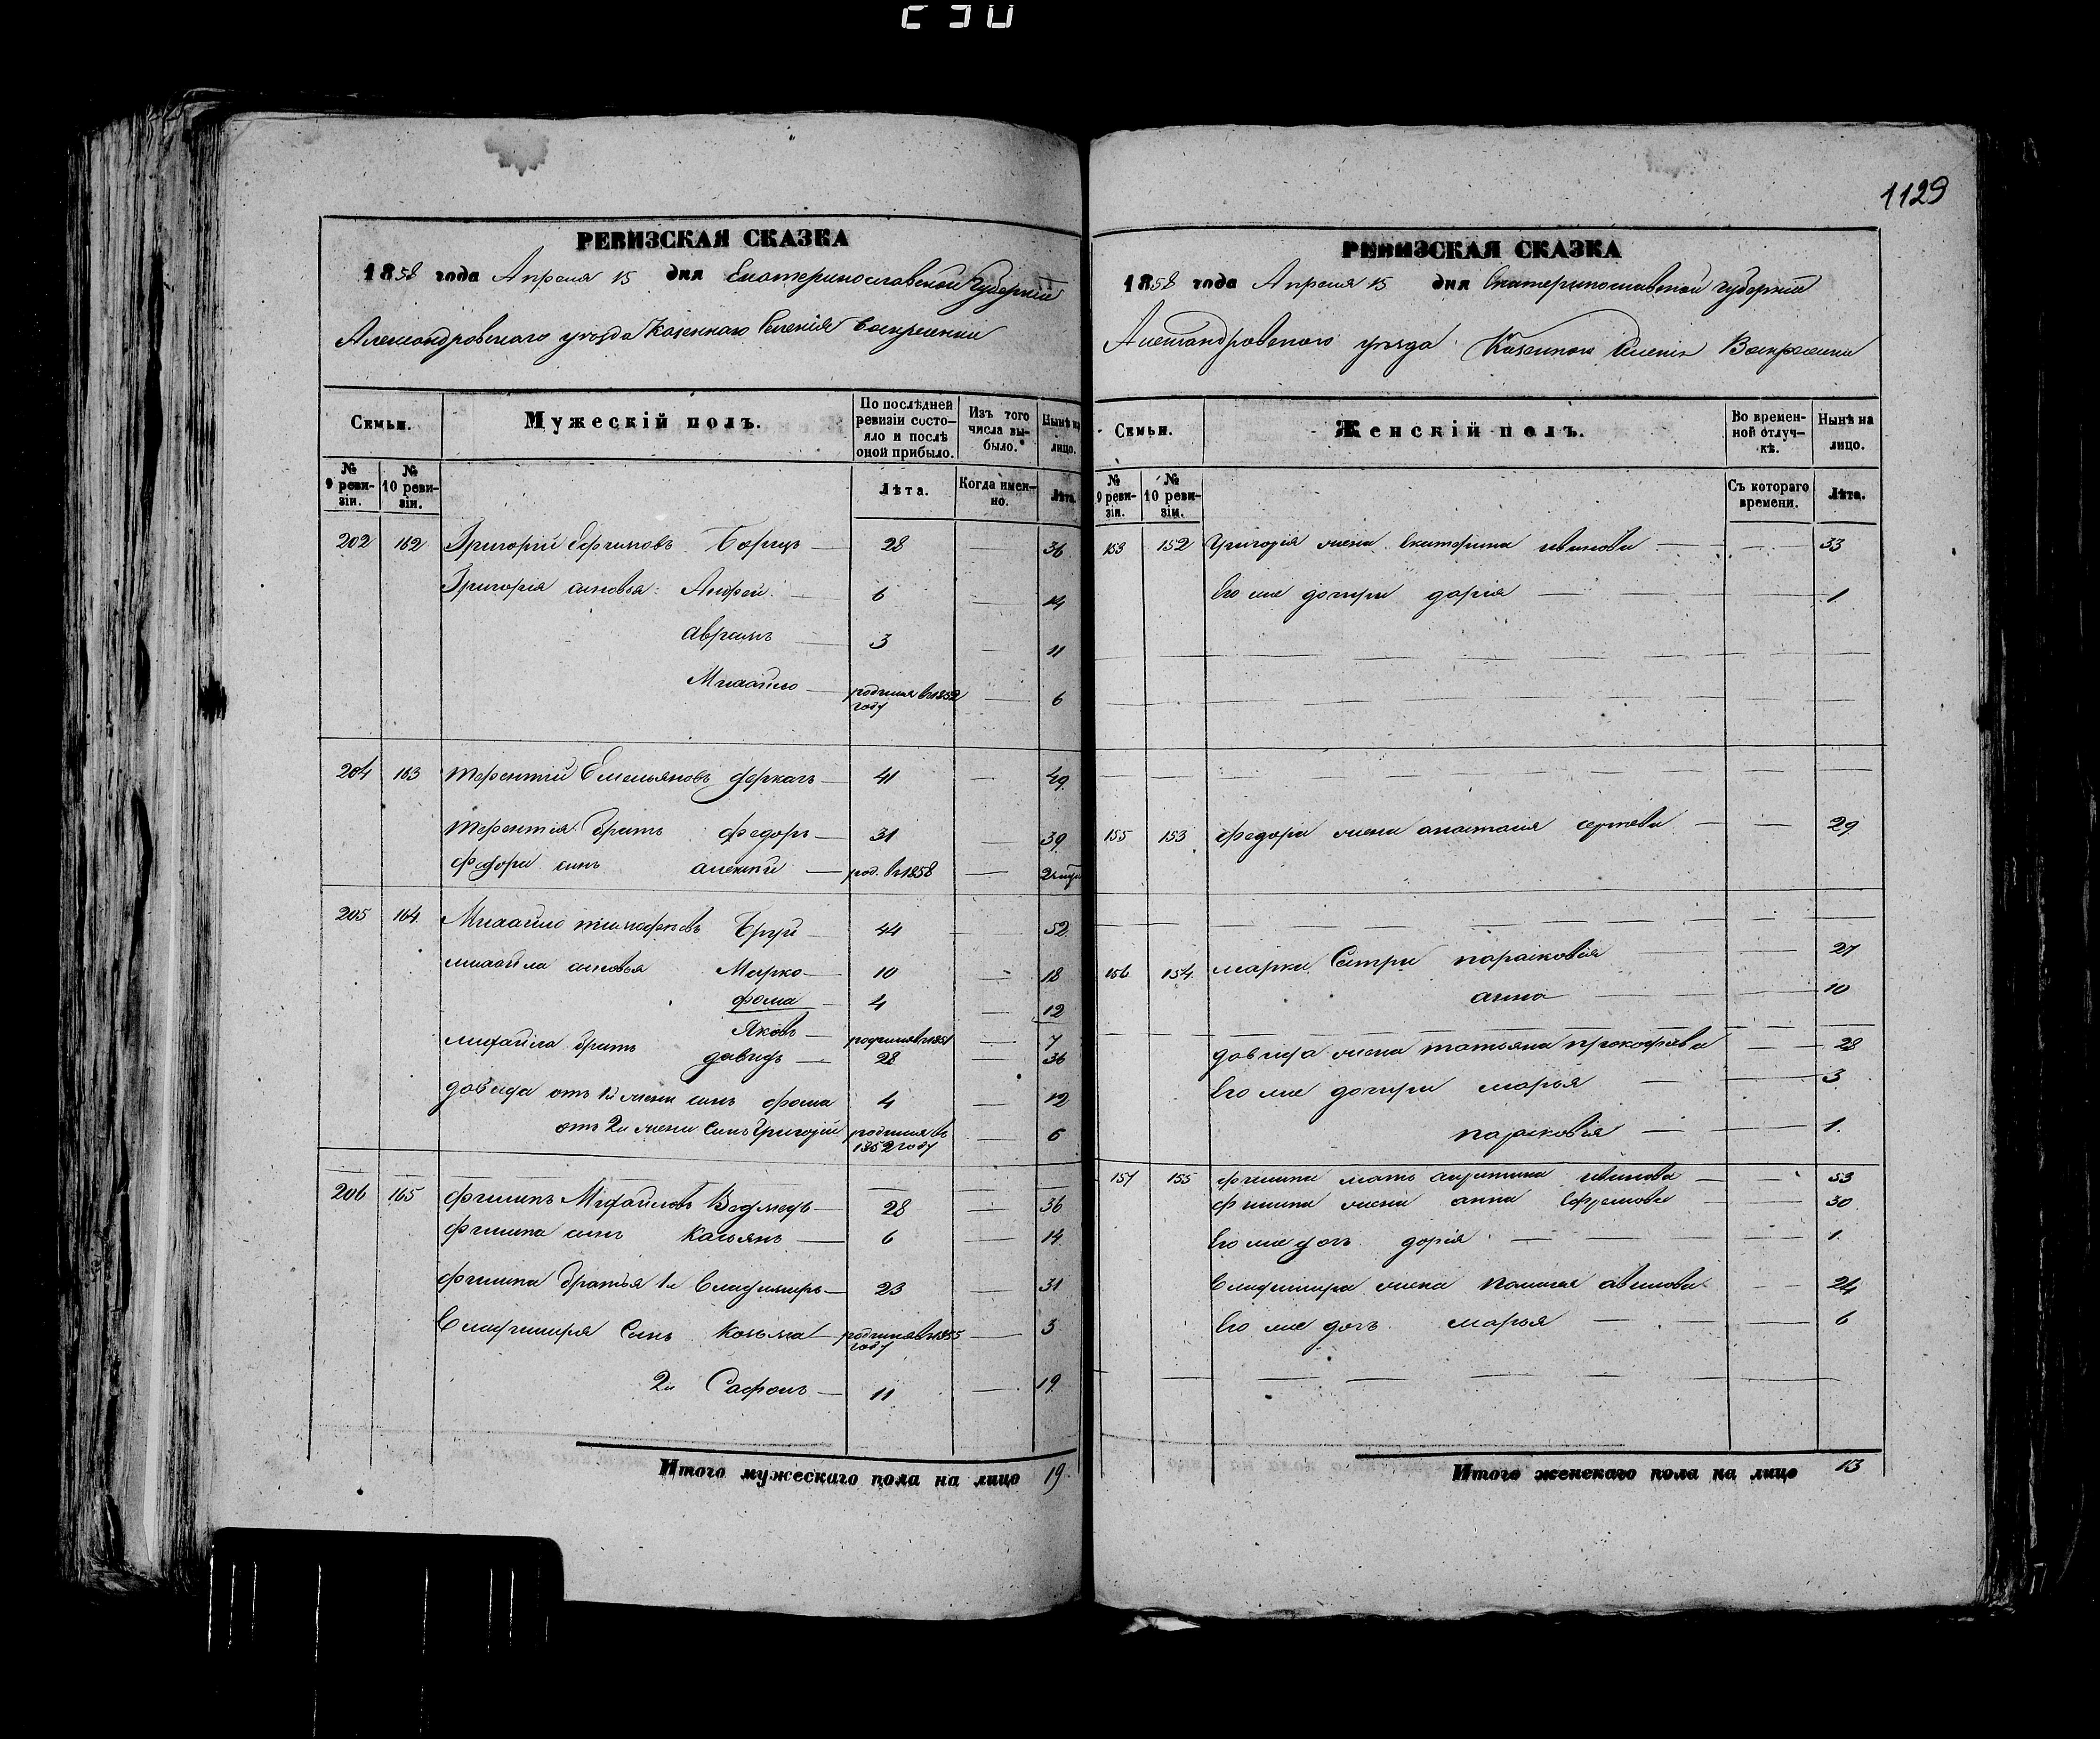 1129
РЕВИЗСКАЯ СКАЗКА
1858 года Апреля 15 дня Екатеринославской Губернии
Александровского уезда Казенного Селения Воскресенки
Семьи.
Мужескій полъ.
По послѣдней ревизіи состояло и послѣ оной прибыло.
Изъ того числа выбыло.
Нынѣ на лицо.
№ 9 ревизіи.
№ 10 ревизіи.
Лѣта.
Когда именно.
Лѣта.
202 162 Григорій Ефимовъ Борщъ 28 36
Григорія сыновья: Андрей 6 14
Аврамъ 3 11
Михайло родился въ 1852 году 6
204 163 Терентій Емельяновъ Деркачъ 41 49
Терентія братъ Федоръ 31 39
Федора сынъ Алексей род. въ 1858
205 164 Михайло Тимофеевъ Бруй 44 52
Михайла сыновья Марко 10 18
Фома 4 12
Яковъ родился въ 1851 7
Михайла братъ Давидъ 28 36
Давида отъ 1й жены сынъ Фома 4 12
отъ 2й жены сынъ Григорій родился въ 1852 году 6
206 165 Филипъ Михайловъ Ведмедь 28 36
Филипа сынъ Касьянъ 6 14
Филипа братья 1й Владимиръ 23 31
Владимира сынъ Козьма родился въ 1855 году 3
2й Сафонъ 11 19
Итого мужескаго пола на лицо 19
РЕВИЗСКАЯ СКАЗКА
1858 года Апреля 15 дня Екатеринославской губернии
Александровского уезда Казенного Селения Воскресенки
Семьи.
Женскій полъ.
Во временной отлучкѣ.
Нынѣ на лицо.
№ 9 ревизіи.
№ 10 ревизіи.
Съ котораго времени.
Лѣта.
153 152 Григорія жена Екатерина Иванова 33
Его же дочери Дарія 1
155 153 Федора жена Анастасия 29
156 154 Марка Сестри Парасковія 27
Анна 10
Давида жена Татьяна Прокофева 28
Его же дочери Марья 3
Парасковія 1
157 155 Филипа мать Иванова 53
Филипа жена Анна Ефремова 30
Его же дочь Дарія 1
Владимира жена 24
Его же дочь Марья 6
Итого женскаго пола на лицо 13